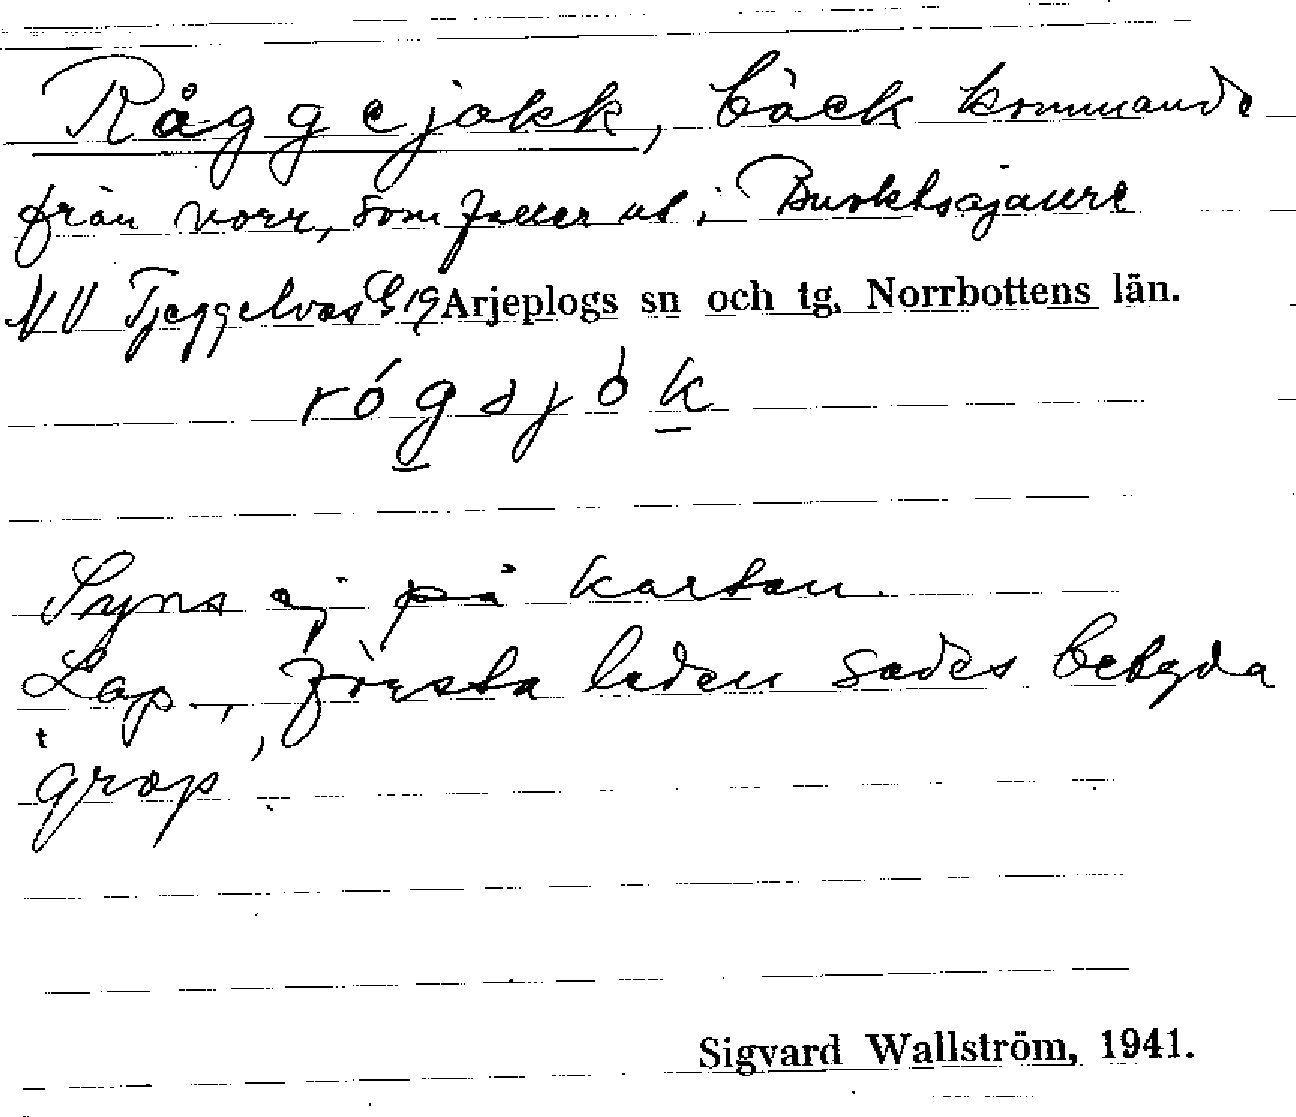 Råggejokk, bäck kommande
från norr, som faller ut i Burktsajaure
NV Tjeggelvas G 19 Arjeplogs sn och tg. Norrbottens län.
rógsjòk
Syns ej på kartan.
Lap., första leden sades betyda
'grop'.
Sigvard Wallström, 1941.